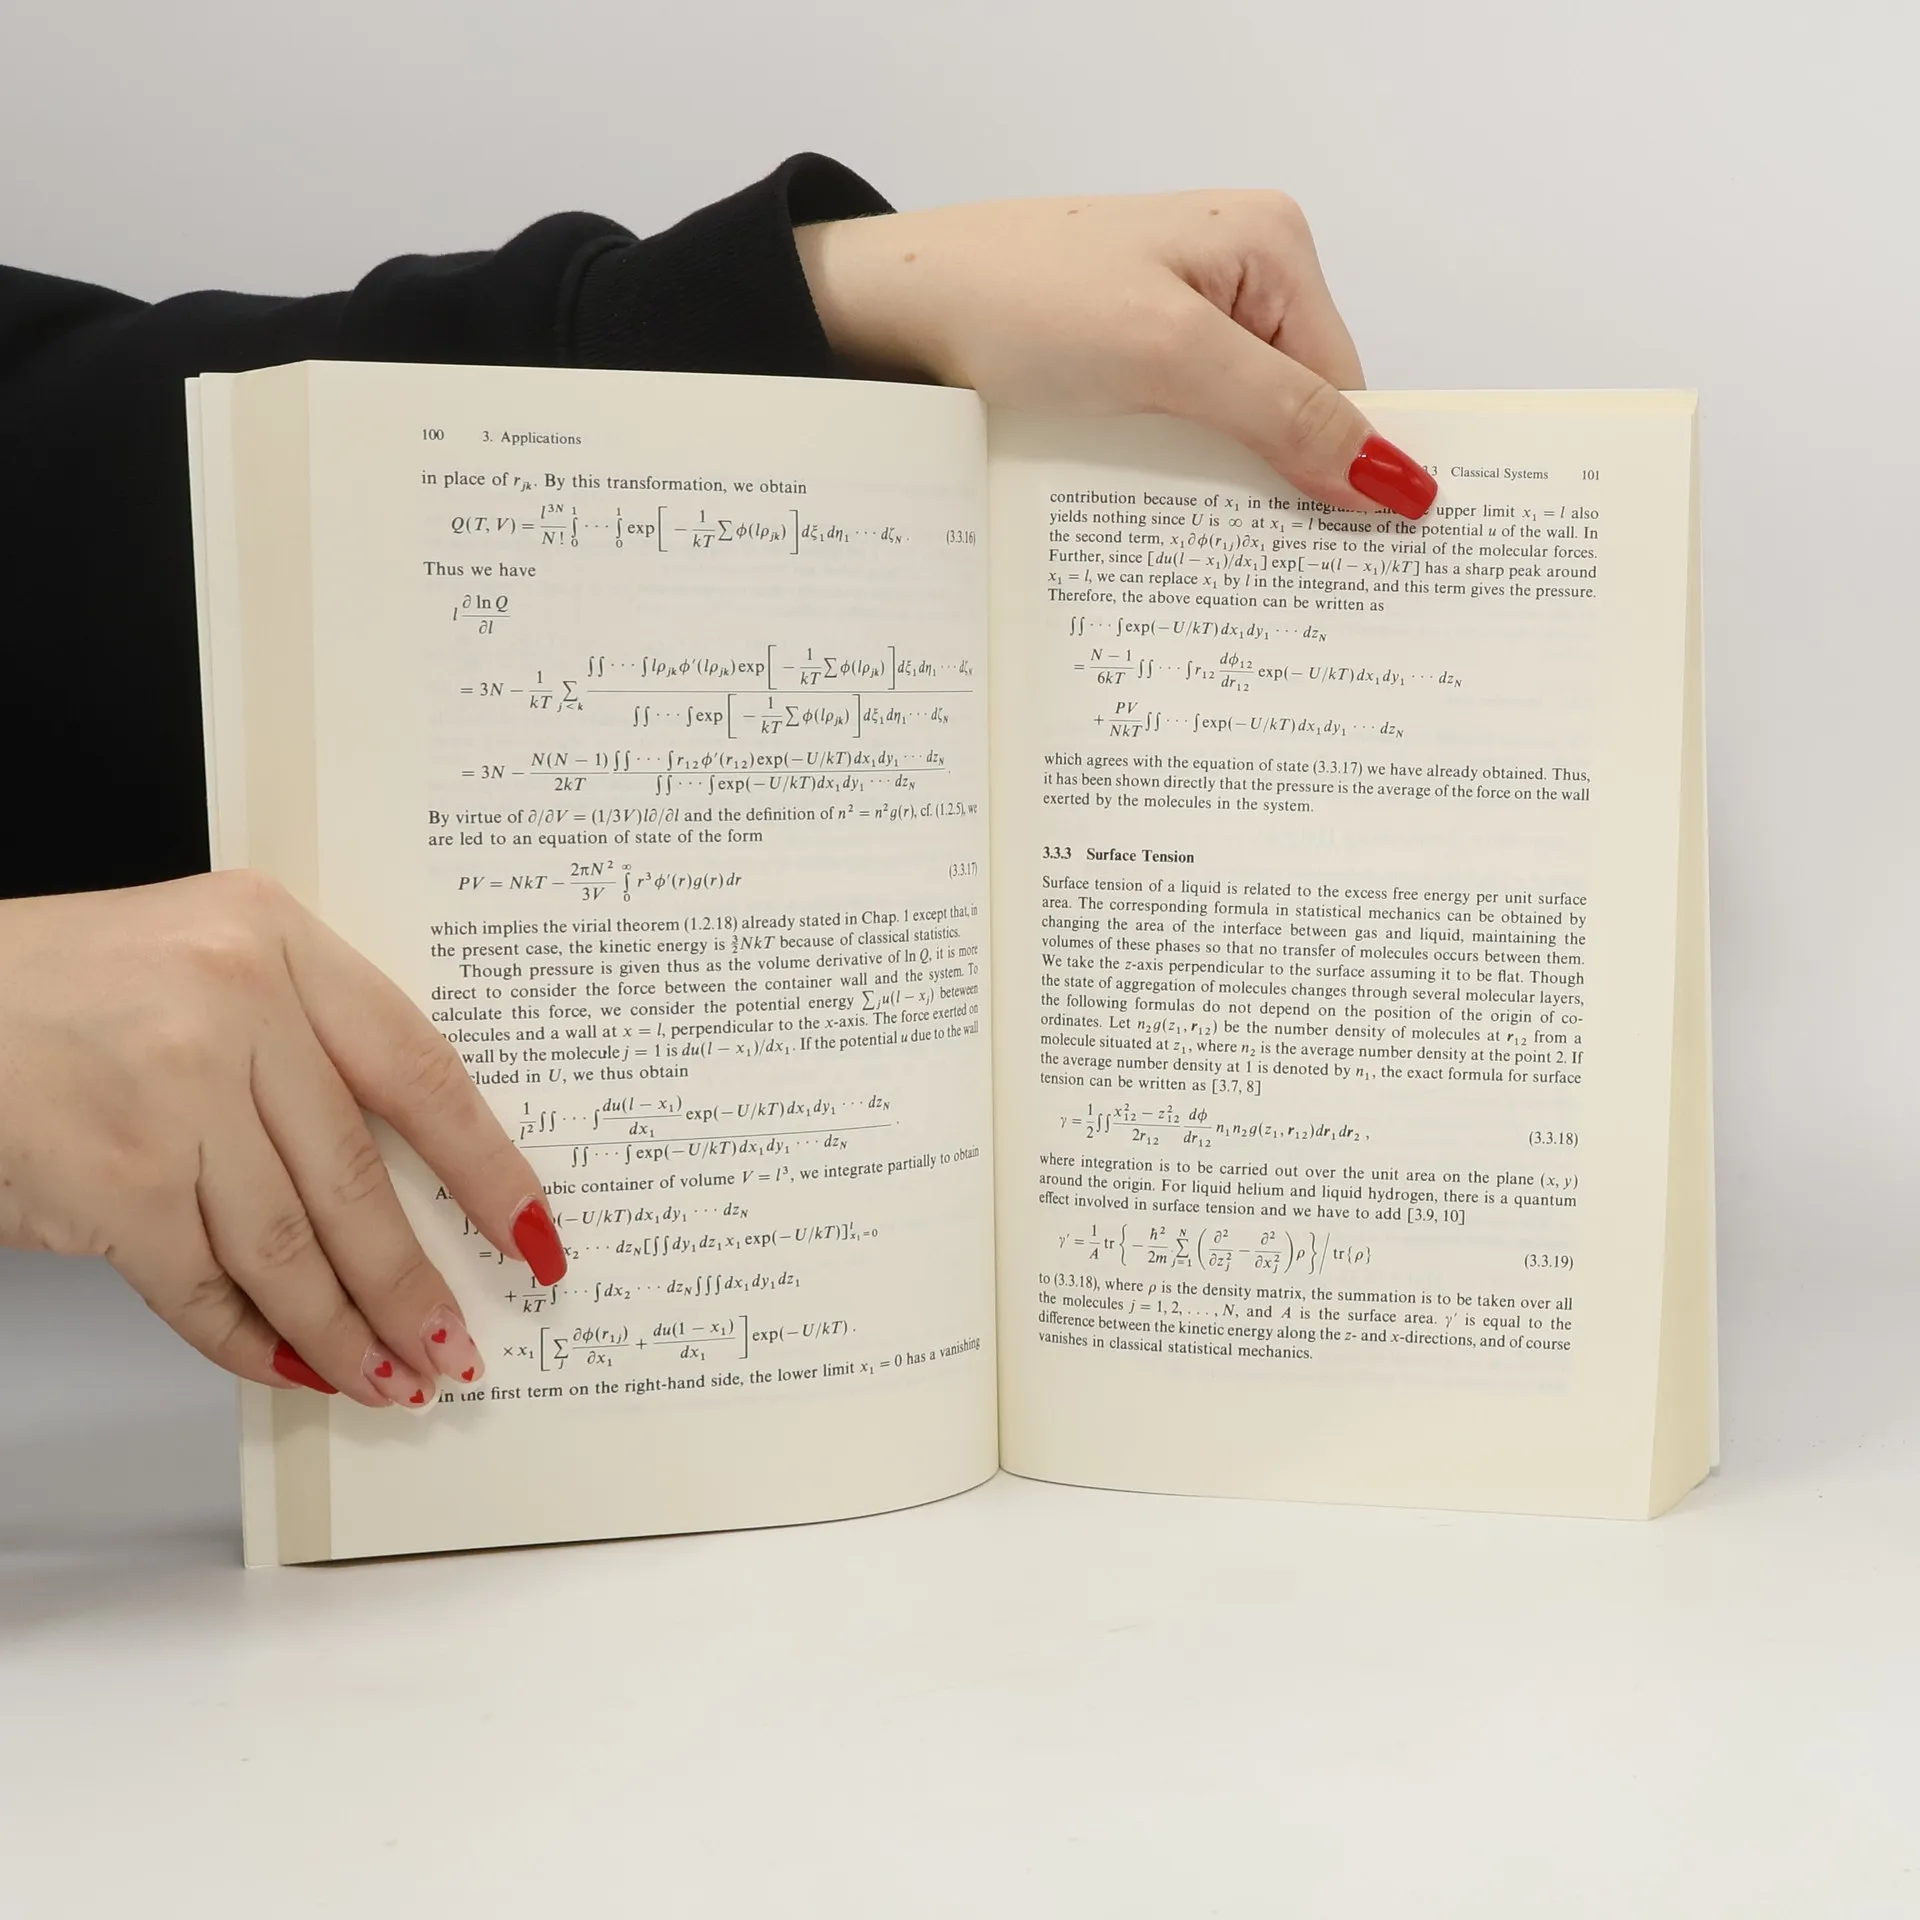 100 3. Applications
in place of r_jk. By this transformation, we obtain
Q(T, V) = l^3N/N! ∫_0^1 ··· ∫_0^1 exp[ − 1/kT ∑ϕ(lρ_jk) ] dξ_1 dη_1 ··· dζ_N . (3.3.16)
Thus we have
l ∂ ln Q/∂l
= 3N − 1/kT ∑_j<k ∫∫ ··· ∫ lρ_jk ϕ′(lρ_jk) exp[ − 1/kT ∑ϕ(lρ_jk) ] dξ_1 dη_1 ··· dζ_N
∫∫ ··· ∫ exp[ − 1/kT ∑ϕ(lρ_jk) ] dξ_1 dη_1 ··· dζ_N
= 3N − N(N − 1)/2kT ∫∫ ··· ∫ r_12 ϕ′(r_12) exp(−U/kT) dx_1 dy_1 ··· dz_N
∫∫ ··· ∫ exp(−U/kT) dx_1 dy_1 ··· dz_N .
By virtue of ∂/∂V = (1/3V)l∂/∂l and the definition of n² = n²g(r), cf. (1.2.5), we
are led to an equation of state of the form
PV = NkT − 2πN²/3V ∫_0^∞ r³ϕ′(r)g(r)dr (3.3.17)
which implies the virial theorem (1.2.18) already stated in Chap. 1 except that, in
the present case, the kinetic energy is 3/2 NkT because of classical statistics.
Though pressure is given thus as the volume derivative of ln Q, it is more
direct to consider the force between the container wall and the system. To
calculate this force, we consider the potential energy ∑_j u(l − x_j) beteween
molecules and a wall at x = l, perpendicular to the x-axis. The force exerted on
wall by the molecule j = 1 is du(l − x_1)/dx_1. If the potential u due to the wall
cluded in U, we thus obtain
1/l² ∫∫ ··· ∫ du(l − x_1)/dx_1 exp(−U/kT) dx_1 dy_1 ··· dz_N
∫∫ ··· ∫ exp(−U/kT) dx_1 dy_1 ··· dz_N .
As ubic container of volume V = l³, we integrate partially to obtain
(−U/kT) dx_1 dy_1 ··· dz_N
= x_2 ··· dz_N [∫∫ dy_1 dz_1 x_1 exp(−U/kT)]^l_x_1=0
+ 1/kT ∫ ··· ∫ dx_2 ··· dz_N ∫∫∫ dx_1 dy_1 dz_1
× x_1 [ ∑_j ∂ϕ(r_1j)/∂x_1 + du(1 − x_1)/dx_1 ] exp(−U/kT) .
in the first term on the right-hand side, the lower limit x_1 = 0 has a vanishing
3 Classical Systems 101
contribution because of x_1 in the upper limit x_1 = l also
yields nothing since U is ∞ at x_1 = l because of the potential u of the wall. In
the second term, x_1∂ϕ(r_1j)∂x_1 gives rise to the virial of the molecular forces.
Further, since [du(l − x_1)/dx_1] exp[−u(l − x_1)/kT] has a sharp peak around
x_1 = l, we can replace x_1 by l in the integrand, and this term gives the pressure.
Therefore, the above equation can be written as
∫∫ ··· ∫ exp(−U/kT) dx_1 dy_1 ··· dz_N
= N − 1/6kT ∫∫ ··· ∫ r_12 dϕ_12/dr_12 exp(−U/kT) dx_1 dy_1 ··· dz_N
+ PV/NkT ∫∫ ··· ∫ exp(−U/kT) dx_1 dy_1 ··· dz_N
which agrees with the equation of state (3.3.17) we have already obtained. Thus,
it has been shown directly that the pressure is the average of the force on the wall
exerted by the molecules in the system.
3.3.3 Surface Tension
Surface tension of a liquid is related to the excess free energy per unit surface
area. The corresponding formula in statistical mechanics can be obtained by
changing the area of the interface between gas and liquid, maintaining the
volumes of these phases so that no transfer of molecules occurs between them.
We take the z-axis perpendicular to the surface assuming it to be flat. Though
the state of aggregation of molecules changes through several molecular layers,
the following formulas do not depend on the position of the origin of co-
ordinates. Let n_2g(z_1, r_12) be the number density of molecules at r_12 from a
molecule situated at z_1, where n_2 is the average number density at the point 2. If
the average number density at 1 is denoted by n_1, the exact formula for surface
tension can be written as [3.7, 8]
γ = 1/2 ∫∫ x²_12 − z²_12/2r_12 dϕ/dr_12 n_1 n_2 g(z_1, r_12) dr_1 dr_2 , (3.3.18)
where integration is to be carried out over the unit area on the plane (x, y)
around the origin. For liquid helium and liquid hydrogen, there is a quantum
effect involved in surface tension and we have to add [3.9, 10]
γ′ = 1/A tr{ − ħ²/2m ∑_j=1^N ( ∂²/∂z²_j − ∂²/∂x²_j ) ρ } / tr{ρ} (3.3.19)
to (3.3.18), where ρ is the density matrix, the summation is to be taken over all
the molecules j = 1, 2, . . . , N, and A is the surface area. γ′ is equal to the
difference between the kinetic energy along the z- and x-directions, and of course
vanishes in classical statistical mechanics.